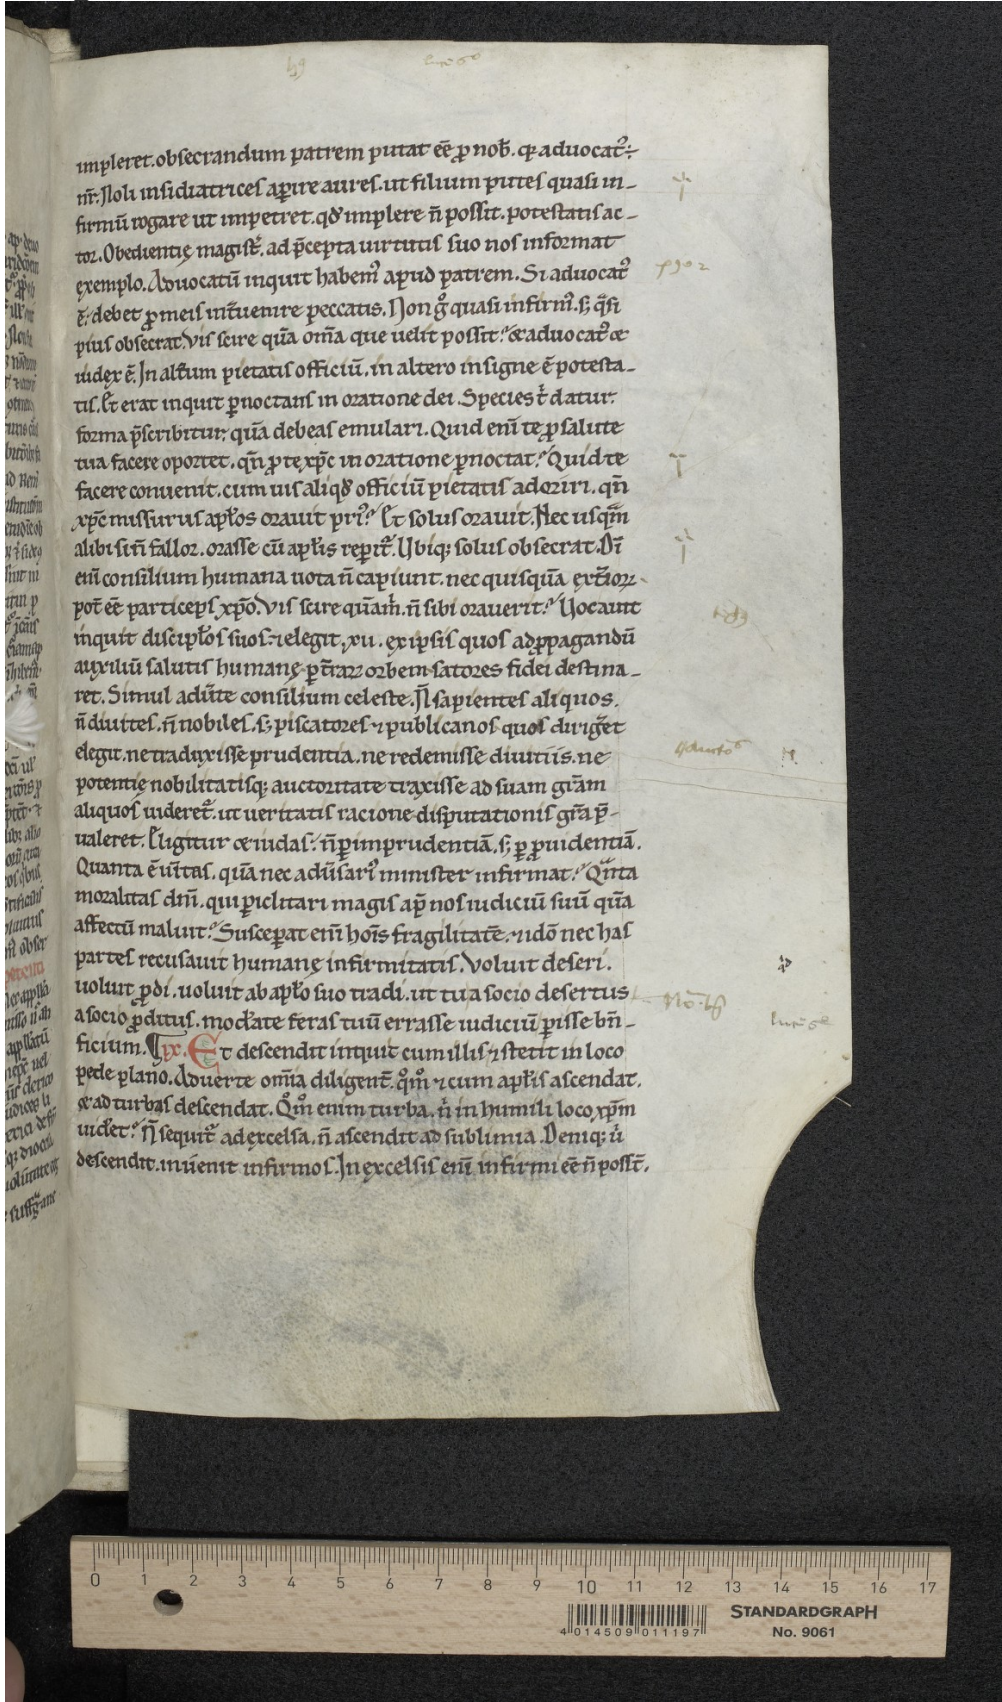 impleret. obsecrandum patrem putat eē ꝓ nob̄. qꝛ aduocat᷒ ÷
nr̄. Noli insidiatrices aꝑire aures. ut filium putes quasi in-
firmū rogare ut impetret. qd̕ implere n̄ possit. potestatis ac-
tor. Obedientię magistꝰ. ad p̄cepta uirtutis suo nos informat
exemplo. Aduocatū inquit habem᷒ apud patrem. Si aduocat᷒
ē. debet ꝓ meis int̄uenire peccatis. Non gͦ quasi infirm᷒. s; qͣsi
pius obsecrat. Vis scire quā om̄a que uelit possit? & aduocat᷒ &
iudex ē. In alt̄um pietatis officiū. in altero insigne ē potesta-
tis. Et erat inquit ꝑnoctans in oratione dei. Species t̕ datur.
forma p̄scribitur. quā debeas emulari. Quid enī te ꝓ salute
tua facere oportet. qn̄ ꝓ te xp̄c in oratione ꝑnoctat? Quid te
facere conuenit. cum uis aliqd̕ officiū pietatis adoriri. qn̄
xp̄c missurus apl̄os orauit pri᷒? Et solus orauit. Nec usqͣm
alibi si n̄ fallor. orasse cū apl̄is reperit᷑. Ubiq; solus obsecrat. Dī
enī consilium humana uota n̄ capiunt. nec quisquā ext̄ioꝝ
pot̄ eē particeps xp̄o. Vis scire quā m̕. n̄ sibi orauerit? Uocauit
inquit discipl̄os suos. ⁊ elegit. xii. ex ipsis quos ad ꝓpagandū
auxiliū salutis humanę ꝑ t̄rarꝝ orbem satores fidei destina-
ret. Simul adūte consilium celeste. N̄ sapientes aliquos.
n̄ diuites. n̄ nobiles. s; piscatores ⁊ publicanos quos dirig̕et
elegit. ne traduxisse prudentia. ne redemisse diuitiis. ne
potentię nobilitatisq; auctoritate traxisse ad suam gr̄am
aliquos uideret᷑. ut ueritatis racione disputationis gr̄a p̄-
ualeret. Eligitur & iudas. n̄ ꝑ imprudentiā. s; ꝑ ꝓuidentiā.
Quanta ē ūitas. quā nec adūsari᷒ minister infirmat? Qͣnta
moralitas dn̄i. qui ꝑiclitari magis ap̄ nos iudiciū suū quā
affectū maluit? Susceperat enī hoīs fragilitatē. ⁊ idō nec has
partes recusauit humanę infirmitatis. Voluit deseri.
uoluit ꝓdi. uoluit ab apl̄o suo tradi. ut tu a socio desertus
a socio ꝓditus. mod̕ate feras tuū errasse iudiciū ꝑisse bn̄-
ficium. ¶ ix. Et descendit inquit cum illis ⁊ stetit in loco
pede plano. Aduerte om̄ia diligent̄. qͦm̊ ⁊ cum apl̄is ascendat.
& ad turbas descendat. Qͦm̊ enim turba. n̄ in humili loco xp̄m
uid̕et? N̄ sequit᷑ ad excelsa. n̄ ascendit ad sublimia. Deniq; u̕
descendit. inuenit infirmos. In excelsis enī infirmi eē n̄ posst̄.
0 1 2 3 4 5 6 7 8 9 10 11 12 13 14 15 16 17
STANDARDGRAPH
No. 9061
4 014509 011197